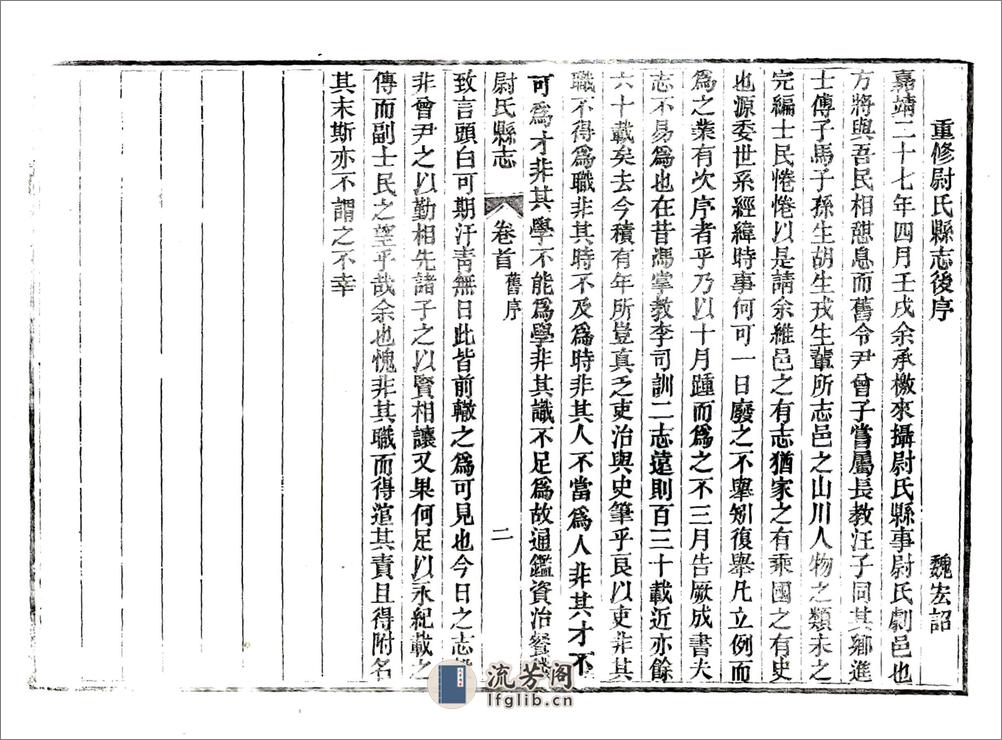 重修尉氏縣志後序 魏宏詔
嘉靖二十七年四月壬戌余承檄來攝尉氏縣事尉氏劇邑也
方將與吾民相憇息而舊令尹曾子嘗屬長教汪子同其鄉進
士傅子馬子孫生胡生戎生輩所志邑之山川人物之類未之
完編士民惓惓以是請余維邑之有志猶家之有乘國之有史
也源委世系經緯時事何可一日廢之不舉矧復舉凡立例而
爲之業有次序者乎乃以十月踵而爲之不三月告厥成書夫
志不易爲也在昔馮掌教李司訓二志遠則百三十載近亦餘
六十載矣去今積有年所豈真乏吏治與史筆乎良以吏非其
職不得爲職非其時不及爲時非其人不當爲人非其才不
可爲才非其學不能爲學非其識不足爲故通鑑資治餐錢
尉氏縣志 卷首 舊序 二
致言頭白可期汗靑無日此皆前轍之爲可見也今日之志
非曾尹之以勤相先諸子之以賢相讓又果何足以永紀載之
傳而副士民之望乎哉余也愧非其職而得逭其責且得附名
其末斯亦不謂之不幸
流芳阁
lfglib.cn